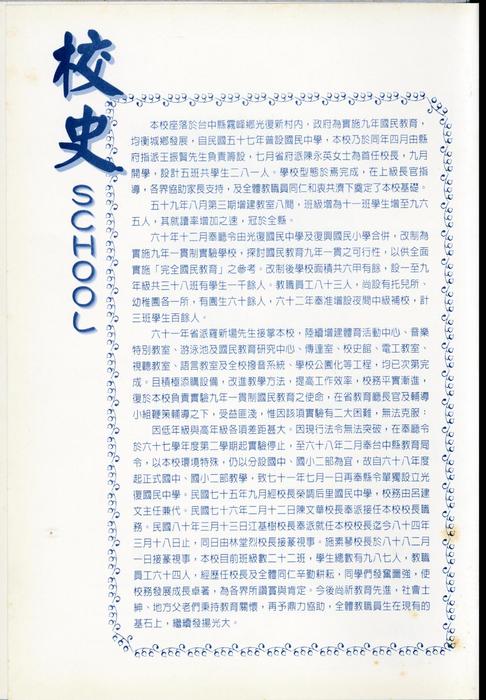 校史
SCHOOL
本校座落於台中縣霧峰鄉光復新村內，政府為實施九年國民教育，
均衡城鄉發展，自民國五十七年普設國民中學，本校乃於同年四月由縣
府指派王振賢先生負責籌設，七月省府派陳永英女士為首任校長，九月
開學，設計五班共學生二八一人。學校型態於焉完成，在上級長官指
導，各界協助家長支持，及全體教職員同仁和衷共濟下奠定了本校基礎。
五十九年八月第三期增建教室八間，班級增為十一班學生增至九六
五人，其就讀率增加之速，冠於全縣。
六十年十二月奉廳令由光復國民中學及復興國民小學合併，改制為
實施九年一貫制實驗學校，探討國民教育九年一貫之可行性，以供全面
實施「完全國民教育」之參考。改制後學校面積共六甲有餘，設一至九
年級共三十八班有學生一千餘人。教職員工八十三人，尚設有托兒所、
幼稚園各一所，有園生六十餘人，六十二年奉准增設夜間中級補校，計
三班學生百餘人。
六十一年省派羅新場先生接掌本校，陸續增建體育活動中心、音樂
特別教室、游泳池及國民教育研究中心、傳達室、校史館、電工教室、
視聽教室、語言教室及全校撥音系統、學校公園化等工程，均已次第完
成。目積極添購設備，改進教學方法，提高工作效率，校務平實漸進，
復於本校負責實驗九年一貫制國民教育之使命，在省教育廳長官及輔導
小組鞭策輔導之下，受益匪淺，惟因該項實驗有二大困難，無法克服：
因低年級與高年級各項差距甚大。因現行法令無法突破，在奉廳令
於六十七學年度第二學期起實驗停止，至六十八年二月奉台中縣教育局
令，以本校環境特殊，仍以分設國中、國小二部為宜，故自六十八年度
起正式國中、國小二部教學，致七十一年七月一日再奉縣令單獨設立光
復國民中學。民國七十五年九月經校長榮調后里國民中學，校務由呂建
文主任兼代。民國七十六年二月十二日陳文華校長奉派接任本校校長職
務。民國八十三年三月十三日江基樹校長奉派就任本校校長迄今八十四年
三月十八日止，同日由林堂烈校長接篆視事。施素琴校長於八十二八月
一日接篆視事，本校目前班級數二十二班，學生總數有九八七人，教職
員工六十四人，經歷任校長及全體同仁辛勤耕耘，同學們發奮圖強，使
校務發展成長卓著，為各界所讚賞與肯定。今後尚祈教育先進，社會士
紳、地方父老們秉持教育關懷，再予鼎力協助，全體教職員生在現有的
基石上，繼續發揚光大。